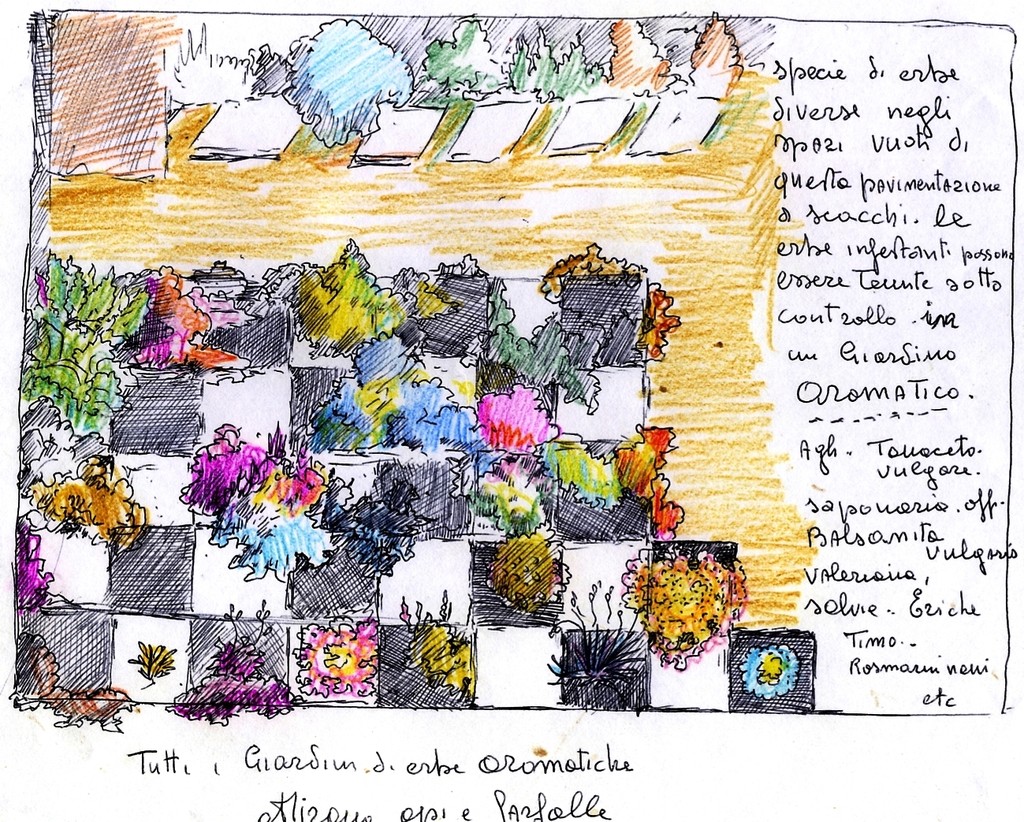 specie di erbe
diverse negli
spazi vuoti di
questa pavimentazione
a scacchi. le
erbe infestanti possono
essere tenute sotto
controllo in
un Giardino
AROMATICO.
Agli. Tanaceto
vulgare.
saponaria. off.
BALsamita
vulgaris
valeriana,
salvie. Eriche
Timo.
Rosmarini nani
etc
Tutti i Giardini di erbe aromatiche
Attirano api e farfalle